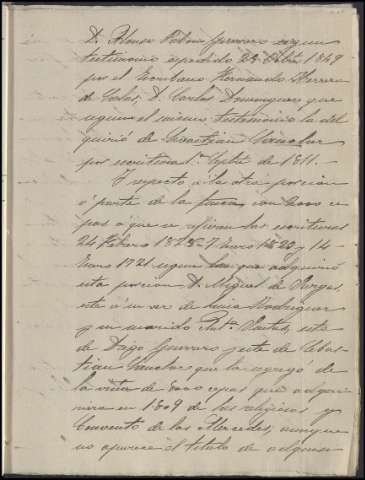 D. Alonso Rubio Guerrero segun
testimonio espedido 22 Octbre 1849
por el Escribano Fernando Herrera
de Carlos, D. Carlos Dominguez que
segun el mismo testimonio la ad-
quirió de Sebastian Sanchez
por escritura 1º Sptbre de 1811.-
Y respecto á la otra porcion
ó parte de la finca con 2000 ce
pas á que se refieren las escrituras
24 Febrero 1825 7 Enero 1820 y 14
Enero 1721 segun las que adquirió
esta porcion D. Miguel de Vargas,
este ó un ser de Luisa Rodriguez
y su marido Antº este
de Diego Guerrero y este de Sebas-
tian Sanchez que la segregó de
la viña de 8000 cepas que adqui-
riera en 1809 de los religiosos y
Convento de las Mercedes, aunque
no aparece el titulo de adquisi-